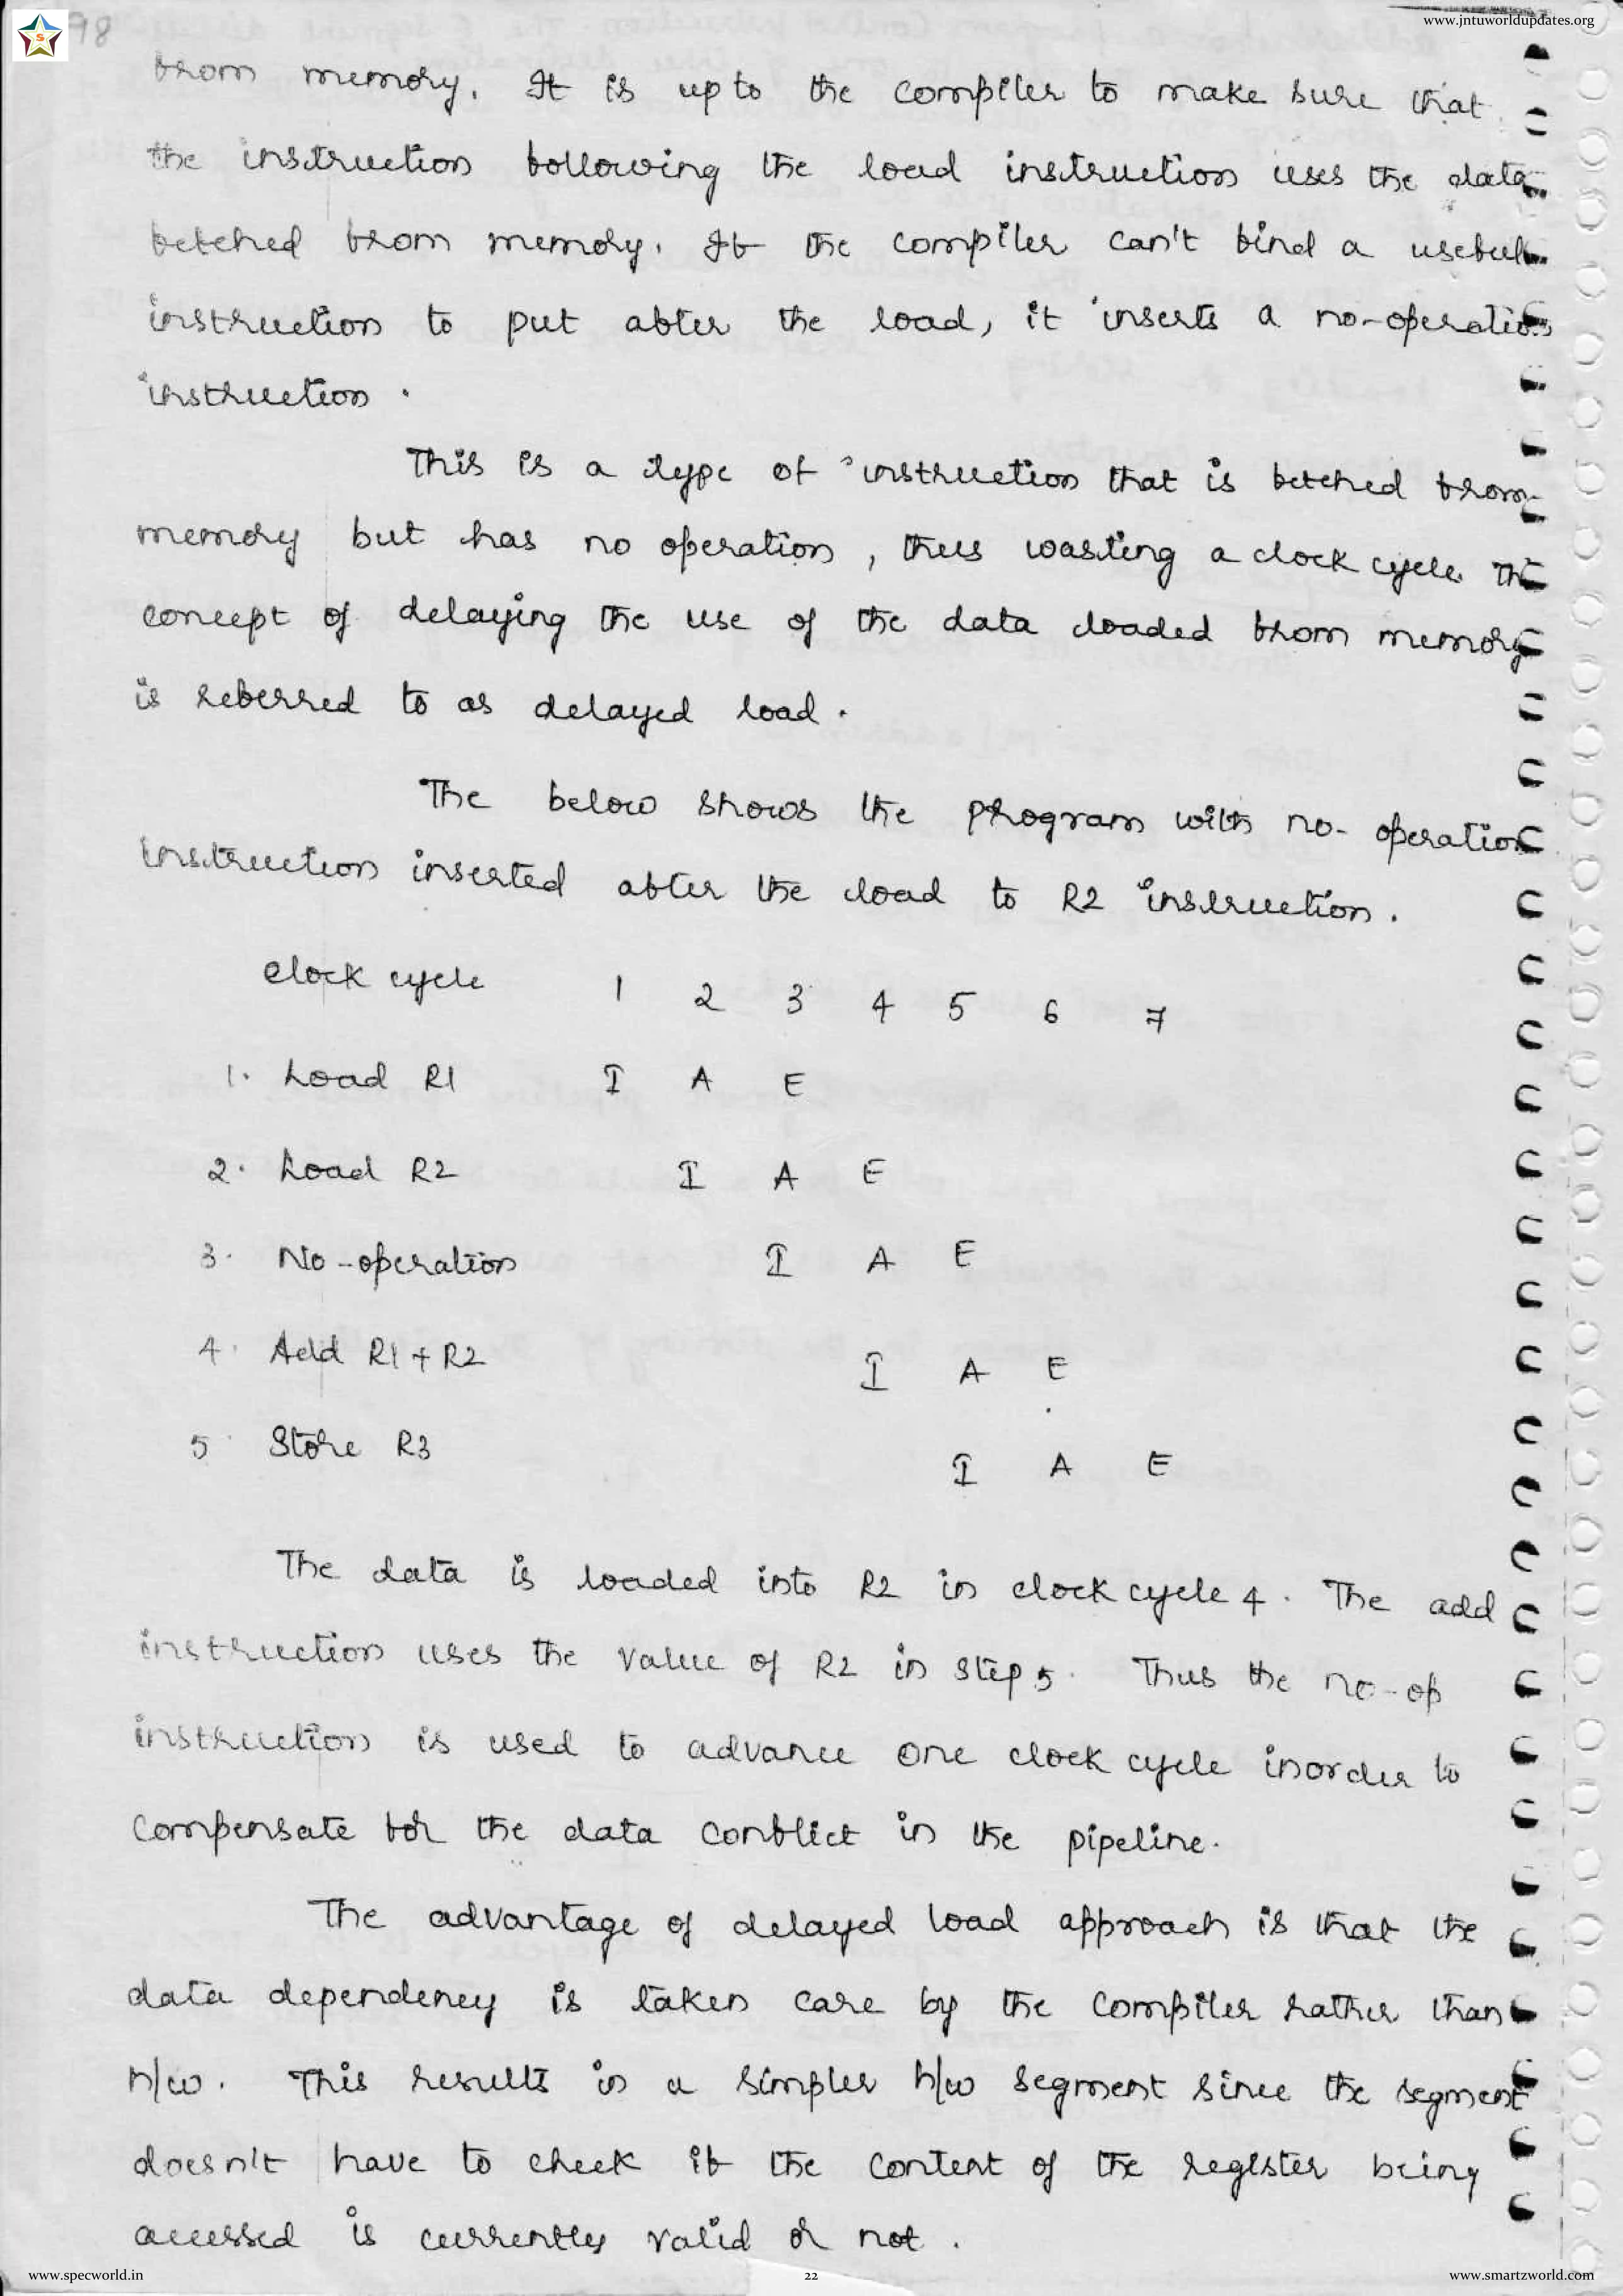 www.jntuworldupdates.org
98
from memory. It is up to the compiler to make sure that
the instruction following the load instruction uses the data
fetched from memory. If the compiler can't find a useful
instruction to put after the load, it inserts a no-operation
instruction.
This is a type of instruction that is fetched from
memory but has no operation, thus wasting a clock cycle. The
concept of delaying the use of the data loaded from memory
is referred to as delayed load.
The below shows the program with no-operation
instruction inserted after the load to R2 instruction.
Clock cycle 1 2 3 4 5 6 7
1. Load R1 I A E
2. Load R2 I A E
3. No-operation I A E
4. Add R1+R2 I A E
5 Store R3 I A E
The data is loaded into R2 in clock cycle 4. The add
instruction uses the value of R2 in step 5. Thus the no-op
instruction is used to advance one clock cycle inorder to
compensate for the data conflict in the pipeline.
The advantage of delayed load approach is that the
data dependency is taken care by the compiler rather than
h/w. This results in a simpler h/w segment since the segment
doesn't have to check if the content of the register being
accessed is currently valid or not.
www.specworld.in 22 www.smartzworld.com